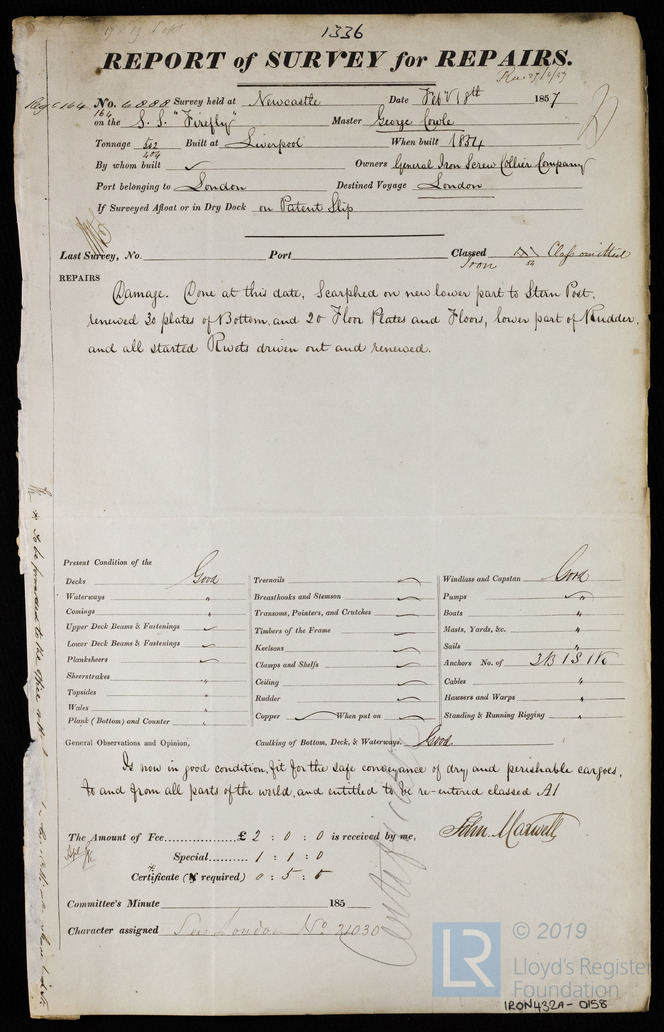 1336
REPORT of SURVEY for REPAIRS.
Rec 27/2/57
No. 6888 Survey held at Newcastle Date Feby 18th 1857
164
on the S.S. "Firefly" Master George Cowle
Tonnage 502 Built at Liverpool When built 1854
404
By whom built Owners General Iron Screw Collier Company
Port belonging to London Destined Voyage London
If Surveyed Afloat or in Dry Dock on Patent Slip
Last Survey, No. Port Classed Class omitted
Iron 54
REPAIRS
Damage. Done at this date, Scarphed on new lower part to Stern Post,
renewed 30 plates of Bottom, and 20 Floor Plates and Floors, lower part of Rudder,
and all started Rivets driven out and renewed.
Present Condition of the
Decks Good Treenails Windlass and Capstan Good
Waterways " Breasthooks and Stemson Pumps "
Comings " Transoms, Pointers, and Crutches Boats "
Upper Deck Beams & Fastenings Timbers of the Frame Masts, Yards, &c. "
Lower Deck Beams & Fastenings Keelsons Sails "
Planksheers Clamps and Shelfs Anchors No. of 3B 1S 1K
Sheerstrakes " Ceiling Cables "
Topsides " Rudder Hawsers and Warps "
Wales " Copper When put on Standing & Running Rigging "
Plank (Bottom) and Counter "
General Observations and Opinion, Caulking of Bottom, Deck, & Waterways. Good
Is now in good condition, fit for the safe conveyance of dry and perishable cargoes,
to and from all parts of the world, and entitled to be re-entered classed A1
The Amount of Fee £ 2 : 0 : 0 is received by me, John Maxwell
Special 1 : 1 : 0
Certificate (if required) 0 : 5 : 0
Committee's Minute 185
Character assigned See London No 21030
Certificate
* To be forwarded to the office
LR © 2019
Lloyd's Register
Foundation
IRON432A-0158